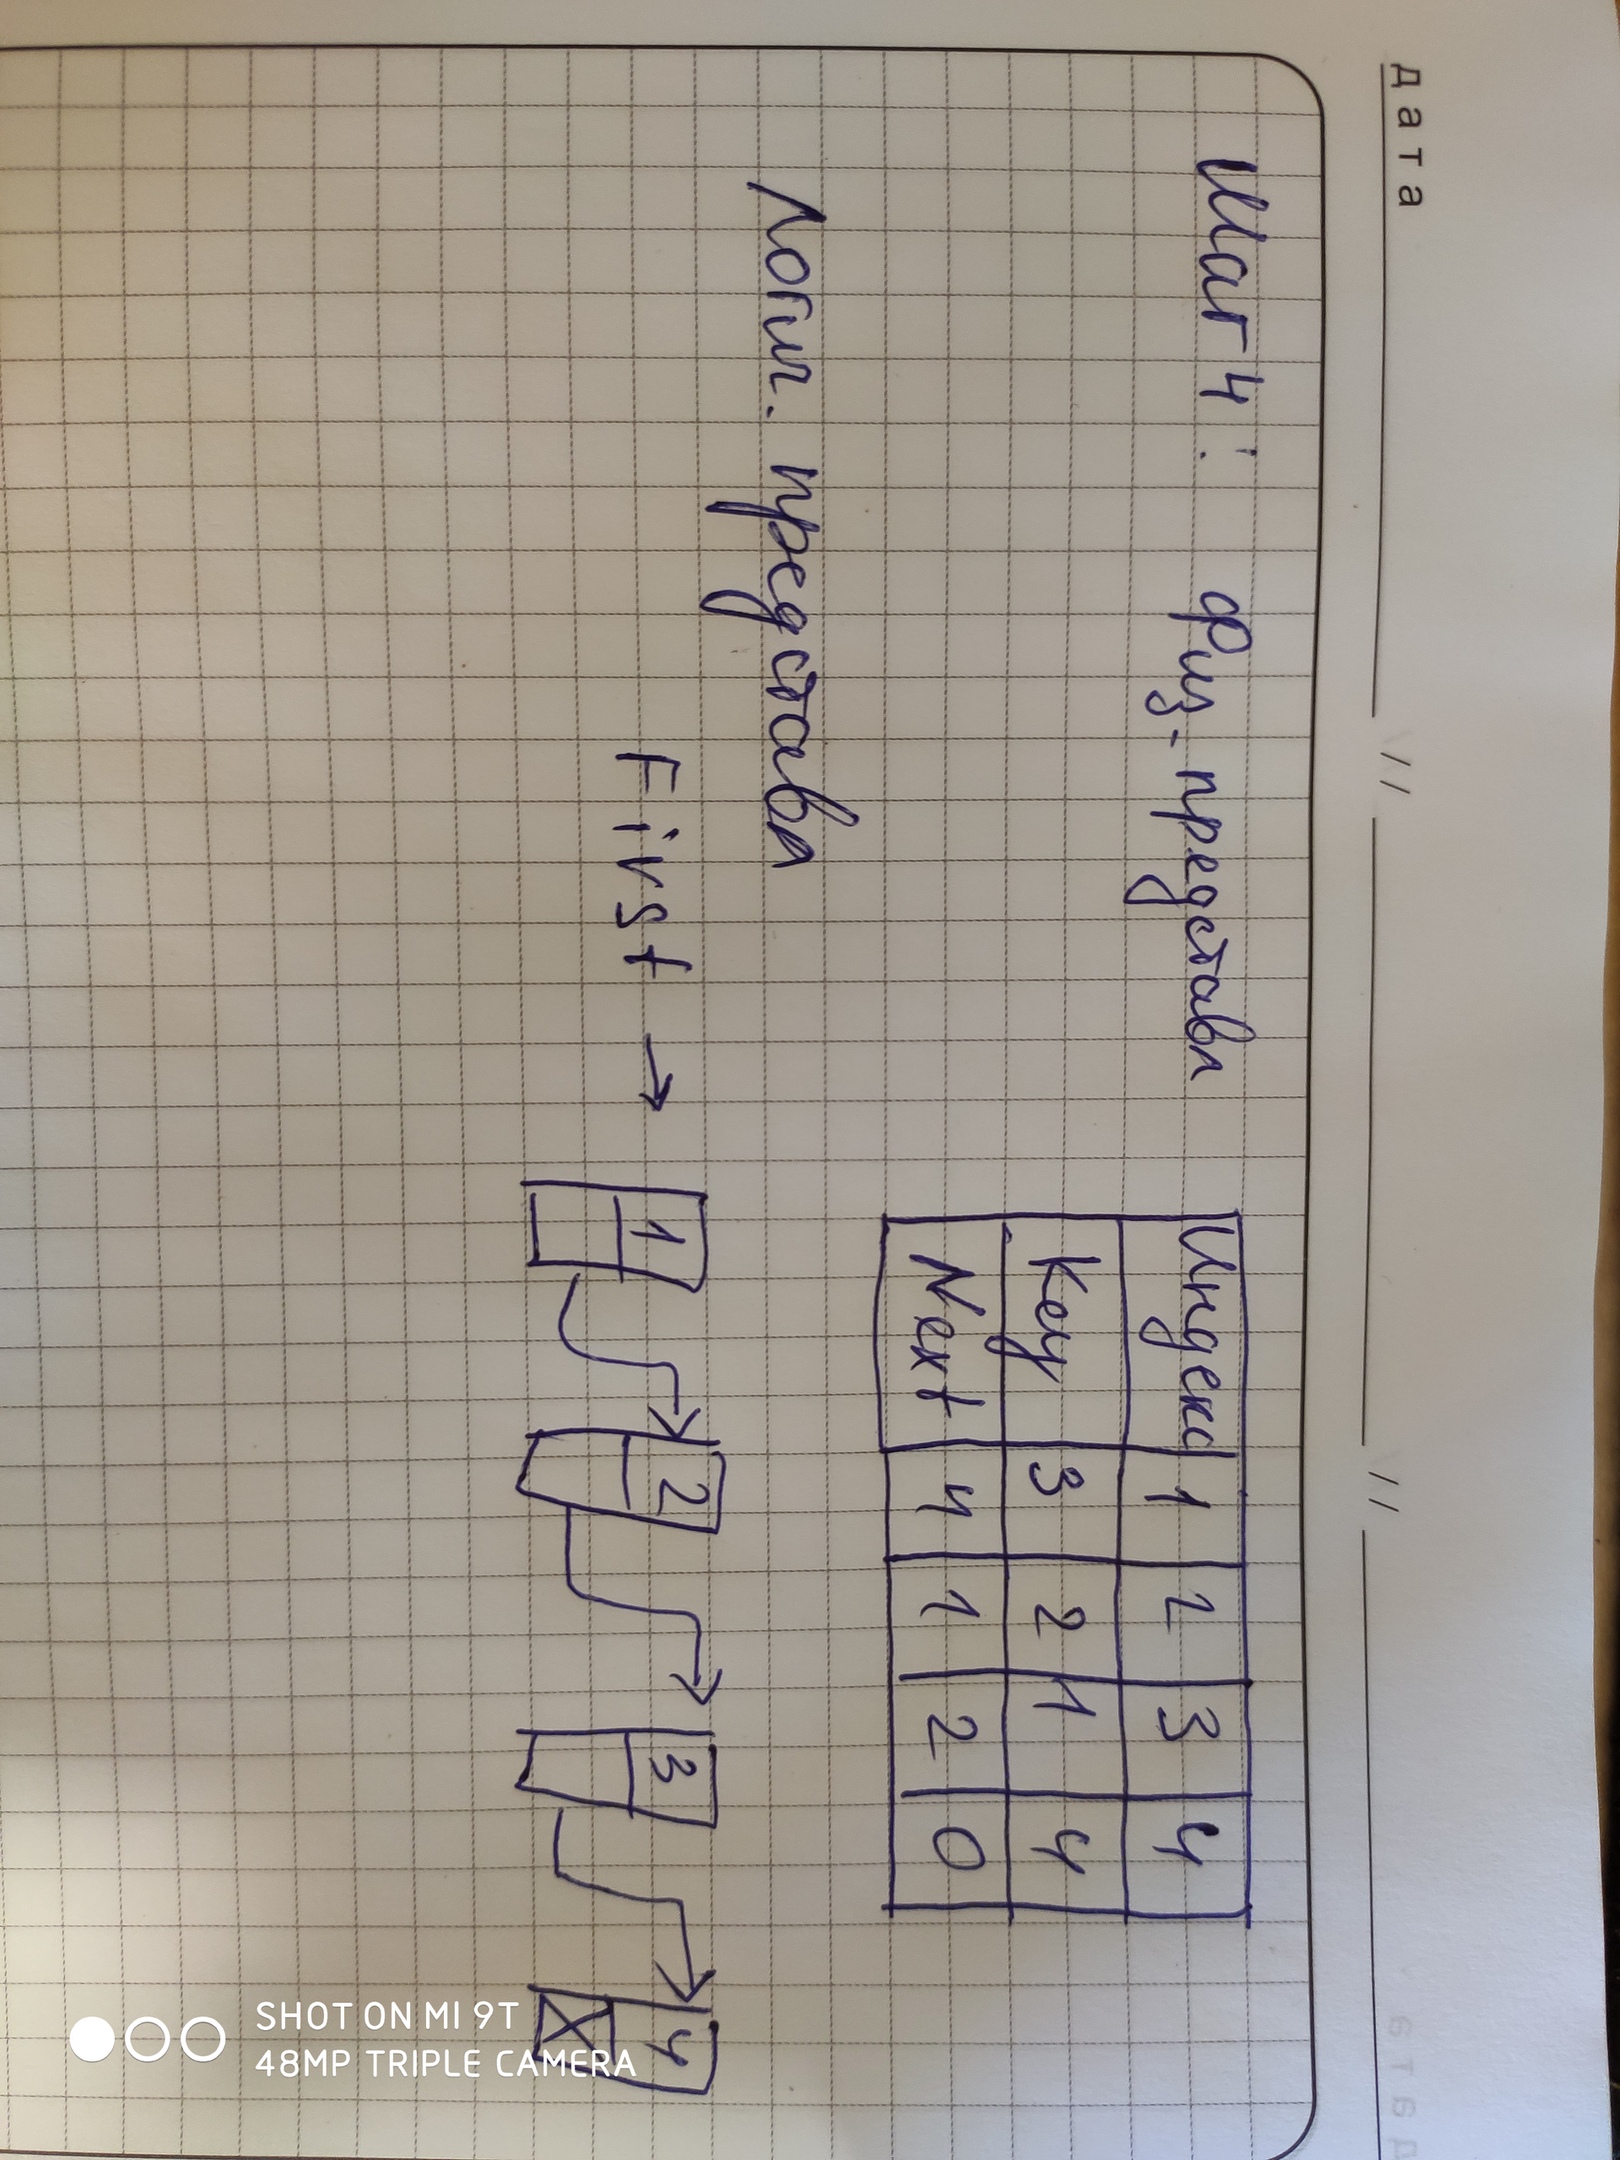 дата // //
Шаг 4: Физ. представл
Индекс 1 2 3 4
Key 3 2 1 4
Next 4 1 2 0
Логич. представл
First → 1 2 3 4
SHOT ON MI 9T
48MP TRIPLE CAMERA